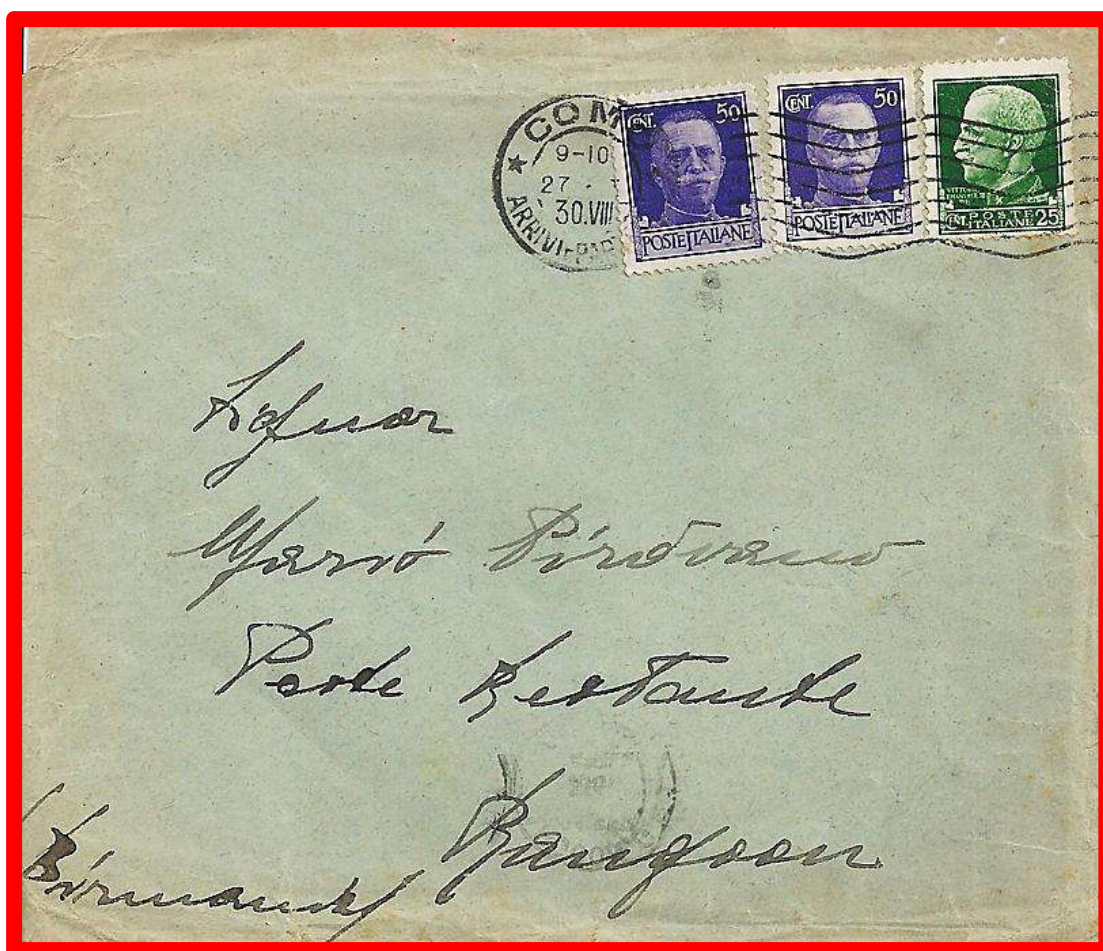 COM
9-10
27 .
30.VIII
ARRIVI-PAR
CENT. 50
POSTE ITALIANE
CENT. 50
POSTE ITALIANE
VITTORIO
CENT. POSTE ITALIANE 25
Mario Pirovano
Poste Restante
Rangoon
(Birmania)